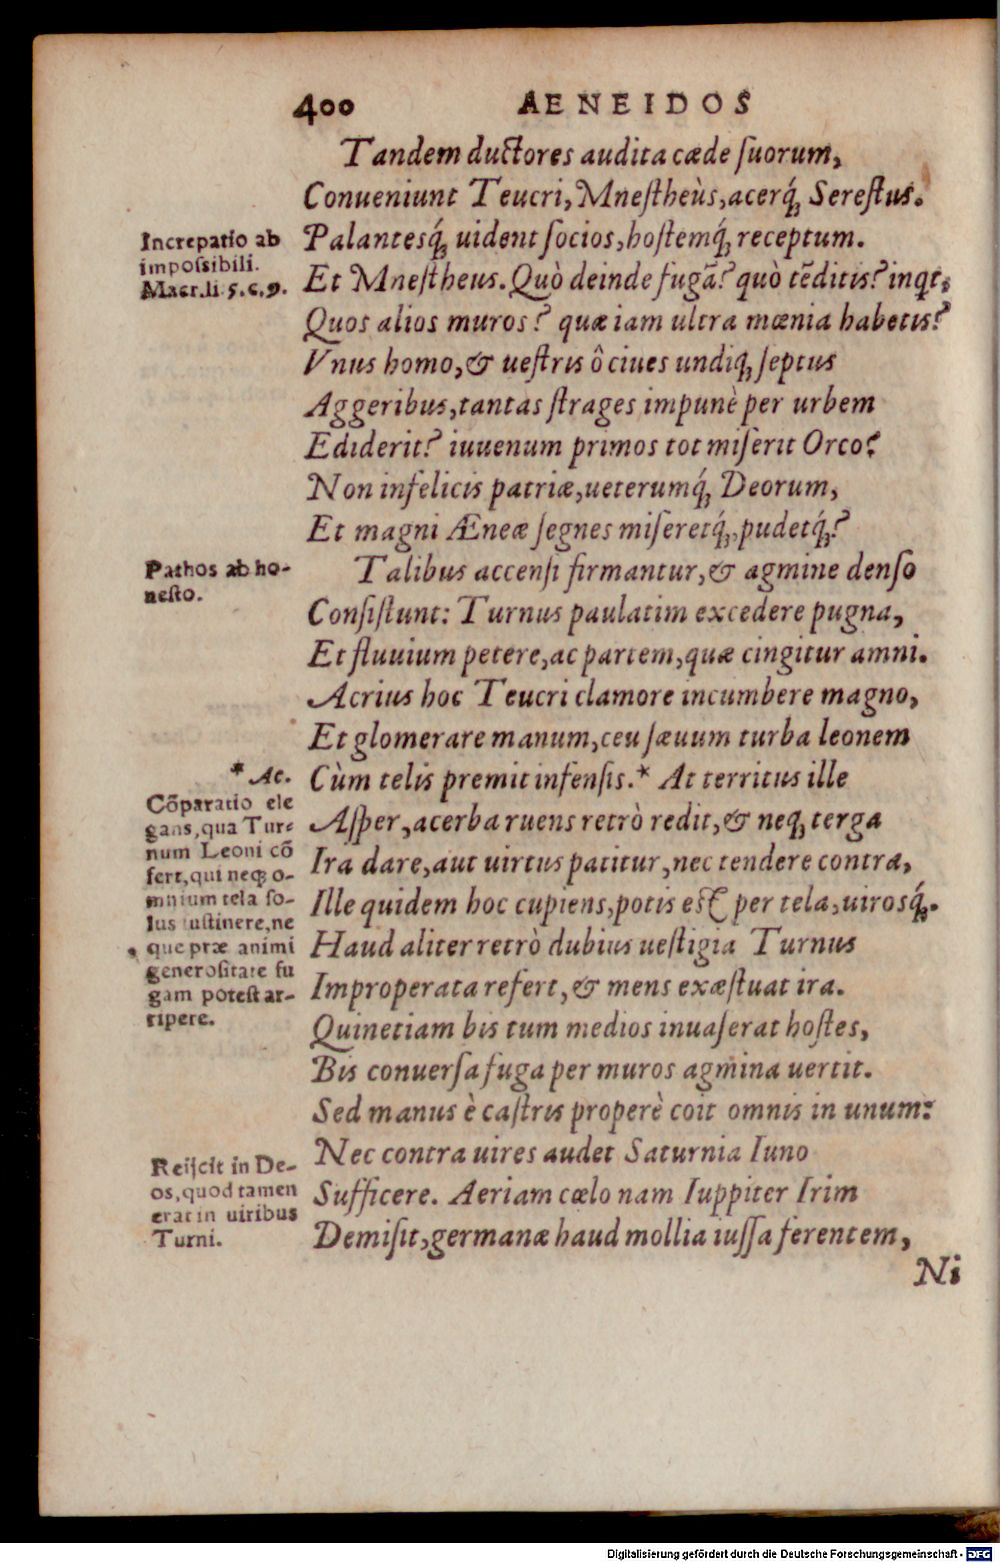 400 AENEIDOS
Tandem ductores audita cæde ſuorum,
Conueniunt Teucri, Mneſtheùs, acerq́; Sereſtus.
Increpatio ab
impoſsibili.
Macr. li 5. c. 9.
Palantesq́; uident ſocios, hoſtemq́; receptum.
Et Mneſtheus. Quò deinde fugã? quò tẽditis? inqt,
Quos alios muros? quæ iam ultra mœnia habetis?
Vnus homo, & ueſtris ô ciues undiq; ſeptus
Aggeribus, tantas ſtrages impunè per urbem
Ediderit? iuuenum primos tot miſerit Orco?
Non infelicis patriæ, ueterumq́; Deorum,
Et magni Æneæ ſegnes miſeretq́;, pudetq́;?
Pathos ab ho-
neſto.
Talibus accenſi firmantur, & agmine denſo
Conſiſtunt: Turnus paulatim excedere pugna,
Et fluuium petere, ac partem, quæ cingitur amni.
Acrius hoc Teucri clamore incumbere magno,
Et glomerare manum, ceu ſæuum turba leonem
* Ac.
Cùm telis premit infenſis.* At territus ille
Cõparatio ele
gans, qua Tur-
num Leoni cõ
fert, qui neq; o-
mnium tela ſo-
lus ſuſtinere, ne
que præ animi
generoſitate fu
gam poteſt ar-
ripere.
Aſper, acerba ruens retrò redit, & neq; terga
Ira dare, aut uirtus patitur, nec tendere contra,
Ille quidem hoc cupiens, potis eſt per tela, uirosq́;.
Haud aliter retrò dubius ueſtigia Turnus
Improperata refert, & mens exæſtuat ira.
Quinetiam bis tum medios inuaſerat hoſtes,
Bis conuerſa fuga per muros agmina uertit.
Sed manus è caſtris properè coit omnis in unum:
Nec contra uires audet Saturnia Iuno
Reijcit in De-
os, quod tamen
erat in uiribus
Turni.
Sufficere. Aeriam cœlo nam Iuppiter Irim
Demiſit, germanæ haud mollia iuſſa ferentem,
Ni
Digitalisierung gefördert durch die Deutsche Forschungsgemeinschaft - DFG